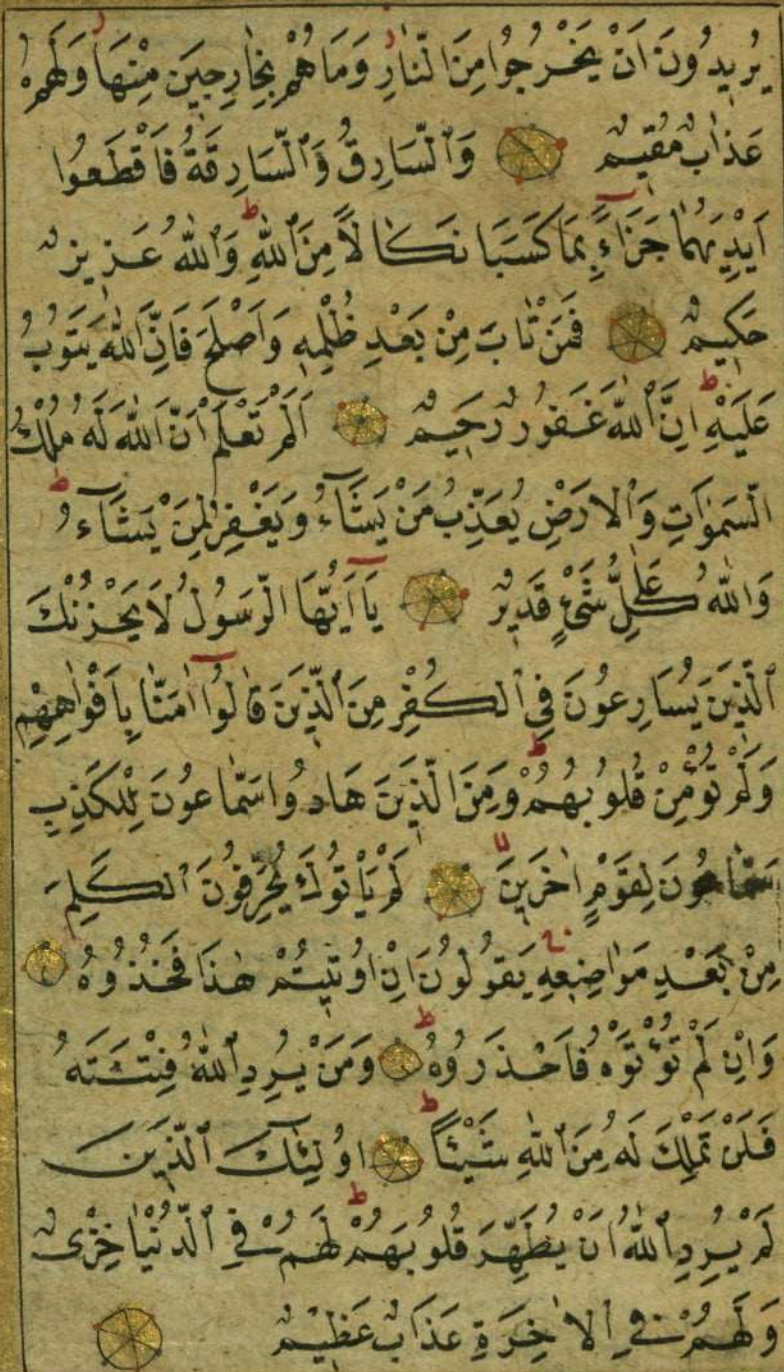 يُرِيدُونَ اَنْ يَخْرُجُوا مِنَ النَّارِ وَمَا هُمْ بِخَارِجِينَ مِنْهَا وَلَهُمْ
عَذَابٌ مُقِيمٌ وَالسَّارِقُ وَالسَّارِقَةُ فَاقْطَعُوا
اَيْدِيَهُمَا جَزَاءً بِمَا كَسَبَا نَكَالًا مِنَ اللّٰهِ وَاللّٰهُ عَزِيزٌ
حَكِيمٌ فَمَنْ تَابَ مِنْ بَعْدِ ظُلْمِهِ وَاَصْلَحَ فَاِنَّ اللّٰهَ يَتُوبُ
عَلَيْهِ اِنَّ اللّٰهَ غَفُورٌ رَحِيمٌ اَلَمْ تَعْلَمْ اَنَّ اللّٰهَ لَهُ مُلْكُ
السَّمٰوَاتِ وَالْاَرْضِ يُعَذِّبُ مَنْ يَشَاءُ وَيَغْفِرُ لِمَنْ يَشَاءُ
وَاللّٰهُ عَلٰى كُلِّ شَيْءٍ قَدِيرٌ يَا اَيُّهَا الرَّسُولُ لَا يَحْزُنْكَ
الَّذِينَ يُسَارِعُونَ فِي الْكُفْرِ مِنَ الَّذِينَ قَالُوا اٰمَنَّا بِاَفْوَاهِهِمْ
وَلَمْ تُؤْمِنْ قُلُوبُهُمْ وَمِنَ الَّذِينَ هَادُوا سَمَّاعُونَ لِلْكَذِبِ
سَمَّاعُونَ لِقَوْمٍ اٰخَرِينَ لَمْ يَأْتُوكَ يُحَرِّفُونَ الْكَلِمَ
مِنْ بَعْدِ مَوَاضِعِهِ يَقُولُونَ اِنْ اُوتِيتُمْ هٰذَا فَخُذُوهُ
وَاِنْ لَمْ تُؤْتَوْهُ فَاحْذَرُوهُ وَمَنْ يُرِدِ اللّٰهُ فِتْنَتَهُ
فَلَنْ تَمْلِكَ لَهُ مِنَ اللّٰهِ شَيْئًا اُولٰئِكَ الَّذِينَ
لَمْ يُرِدِ اللّٰهُ اَنْ يُطَهِّرَ قُلُوبَهُمْ لَهُمْ فِي الدُّنْيَا خِزْيٌ
وَلَهُمْ فِي الْاٰخِرَةِ عَذَابٌ عَظِيمٌ